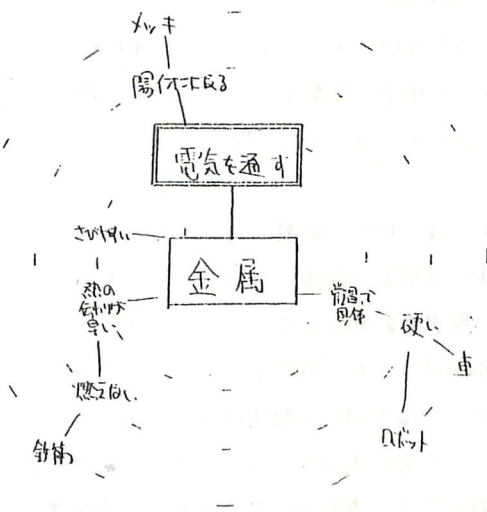 メッキ
陽イオンになる
電気を通す
さびやすい
金属
熱の
伝わりが
早い
常温で
固体
硬い
車
燃えない
ロボット
鉄筋